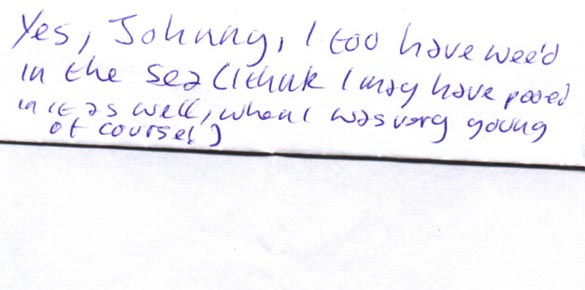 Yes, Johnny, I too have wee'd
in the sea (I think I may have pooed
in it as well, when I was very young
of course!)